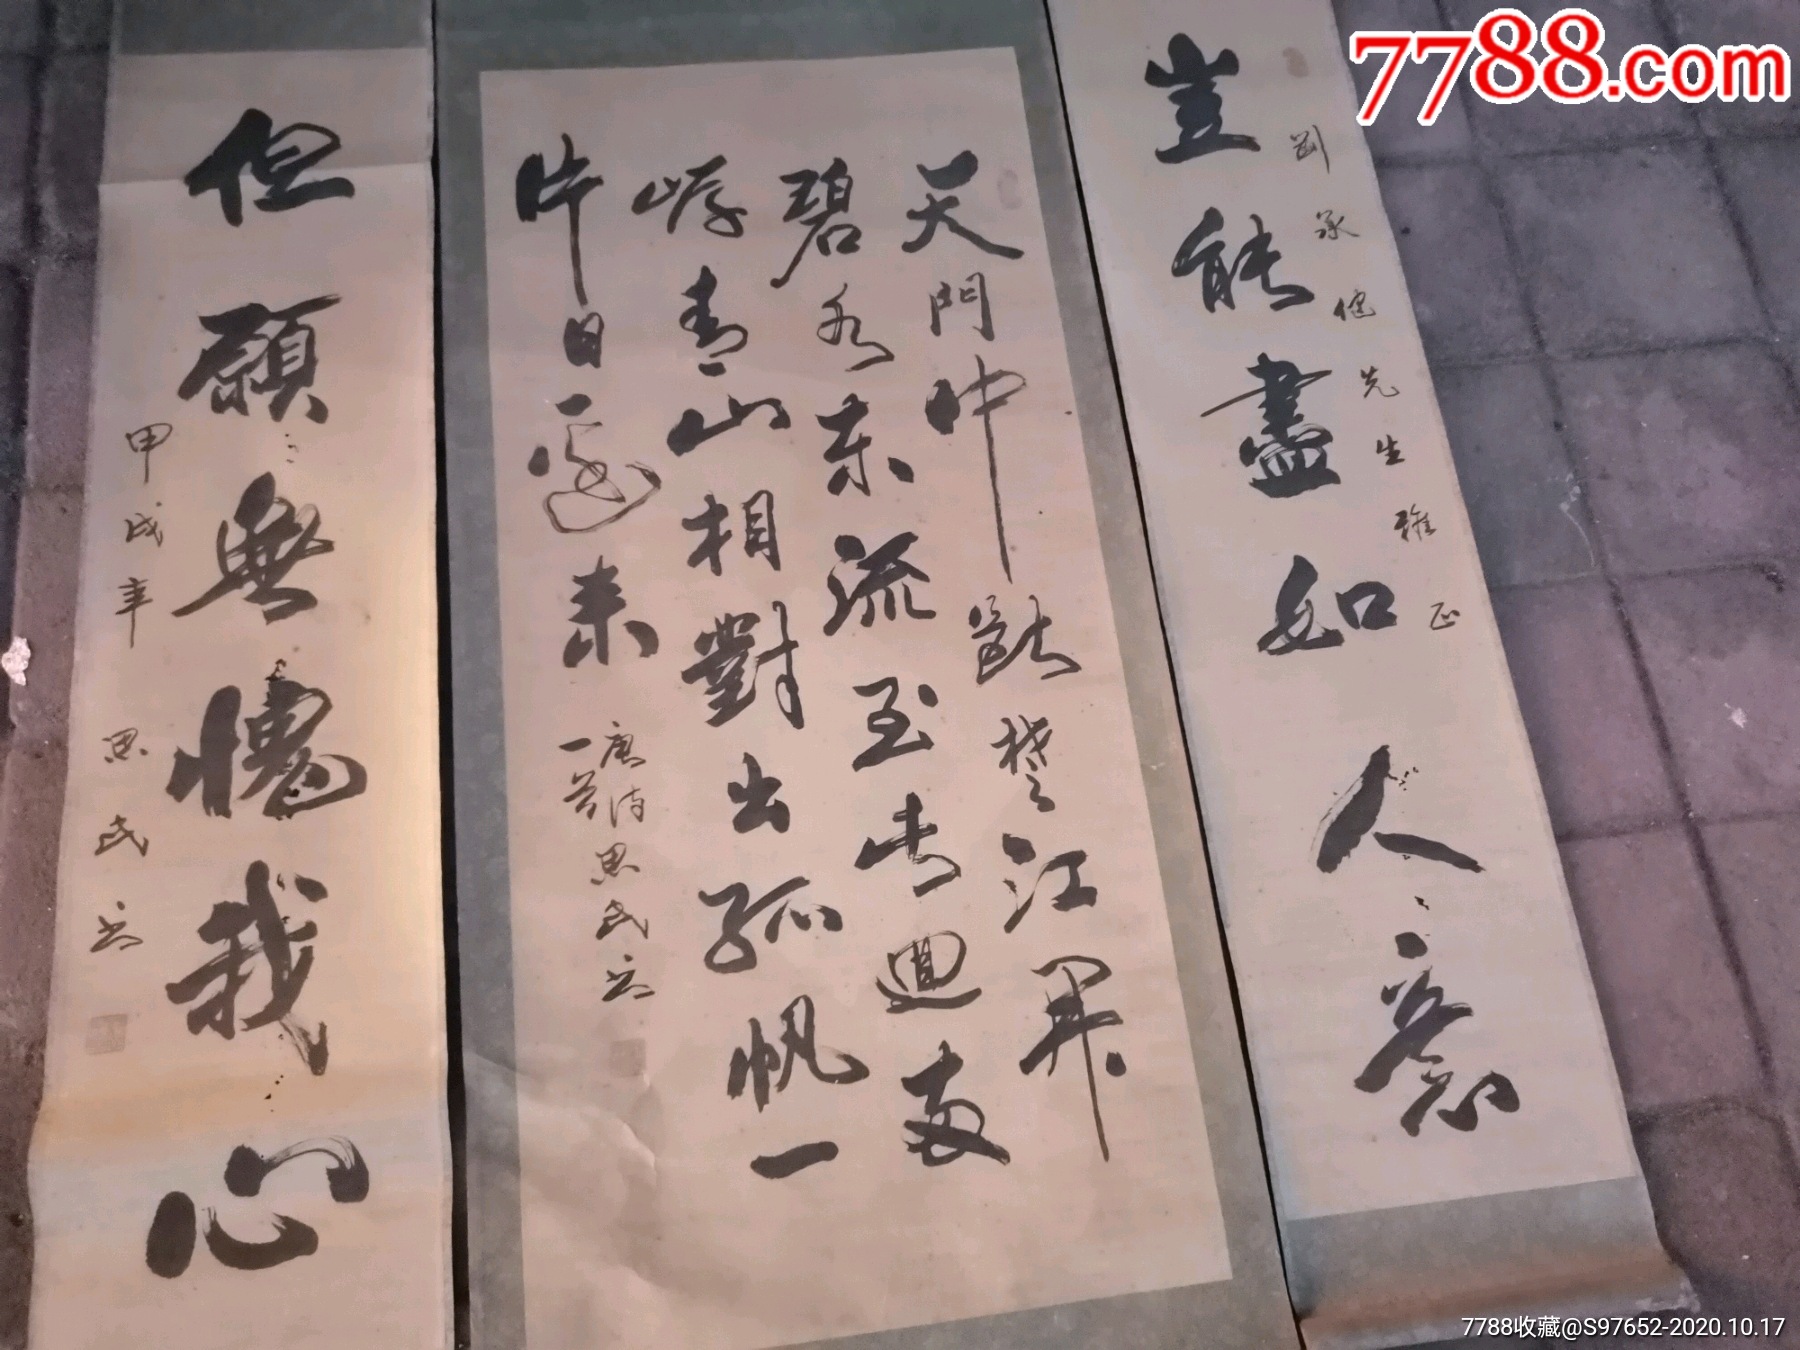 7788.com
劉承健先生雅正
豈能盡如人意
天門中斷楚江開
碧水东流至此迴兩
岸青山相對出孤帆一
片日邊来
唐诗
一首
思武书
但願無愧我心
甲戌年 思武书
7788收藏@S97652-2020.10.17